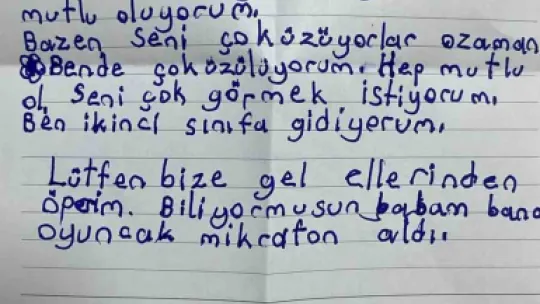 mutlu oluyorum.
Bazen Seni çok üzüyorlar ozaman
Bende çok üzülüyorum. Hep mutlu
ol Seni çok görmek istiyorum.
Ben ikinci sınıfa gidiyorum.
Lütfen bize gel ellerinden
öperim. Biliyormusun babam bana
oyuncak mikrafon aldı.